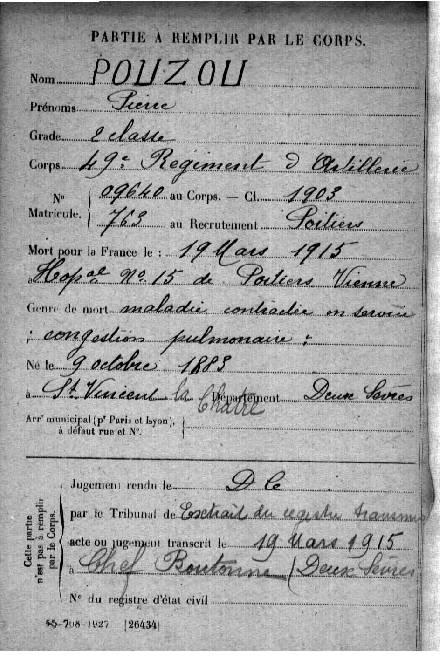 PARTIE A REMPLIR PAR LE CORPS.
Nom POUZOU
Prénoms Pierre
Grade 2 classe
Corps 49e Regiment d'Artillerie
N° 09640 au Corps. — Cl. 1903
Matricule. 763 au Recrutement Poitiers
Mort pour la France le : 19 Mars 1915
Hopal No 15 de Poitiers Vienne
Genre de mort maladie contractée en service
: congestion pulmonaire :
Né le 9 octobre 1883
à St Vincent la Châtre Département Deux Sèvres
Arrt municipal (pr Paris et Lyon),
à défaut rue et N°.
Cette partie
n'est pas à remplir
par le Corps.
Jugement rendu le D C
par le Tribunal de Extrait du registre transmis
acte ou jugement transcrit le 19 Mars 1915
à Chef Boutonne (Deux Sèvres
N° du registre d'état civil
-708-1927 [26434]